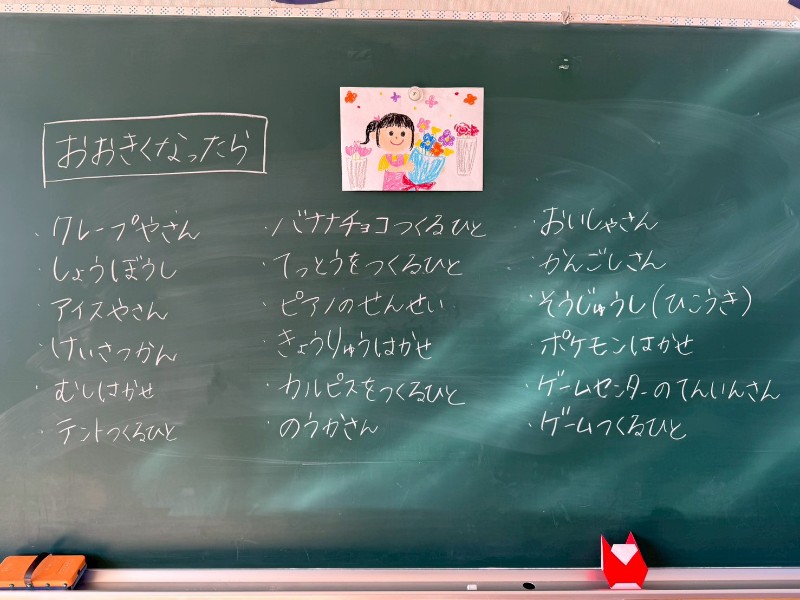 おおきくなったら
・クレープやさん
・しょうぼうし
・アイスやさん
・けいさつかん
・むしはかせ
・テントつくるひと
・バナナチョコつくるひと
・てっとうをつくるひと
・ピアノのせんせい
・きょうりゅうはかせ
・カルピスをつくるひと
・のうかさん
・おいしゃさん
・かんごしさん
・そうじゅうし(ひこうき)
・ポケモンはかせ
・ゲームセンターのてんいんさん
・ゲームつくるひと